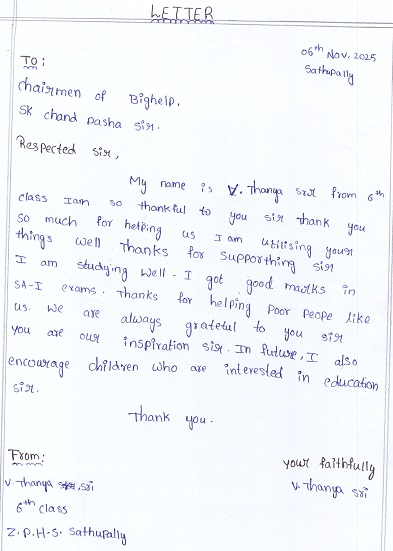 LETTER
06th Nov. 2025
Sathupally
To:
chairmen of Bighelp.
SK chand pasha sir.
Respected sir,
My name is V. Thanya sri from 6th
class I am so thankful to you sir thank you
so much for helping us I am utilising your
things well thanks for supporthing sir
I am studying well. I got good marks in
SA-I exams. Thanks for helping poor peope like
us. We are always grateful to you sir
you are our inspiration sir. In future, I also
encourage children who are interested in education
sir.
Thank you.
From:
your faithfully
V. Thanya sri
V. Thanya sri
6th class
Z.P.H.S. Sathupally